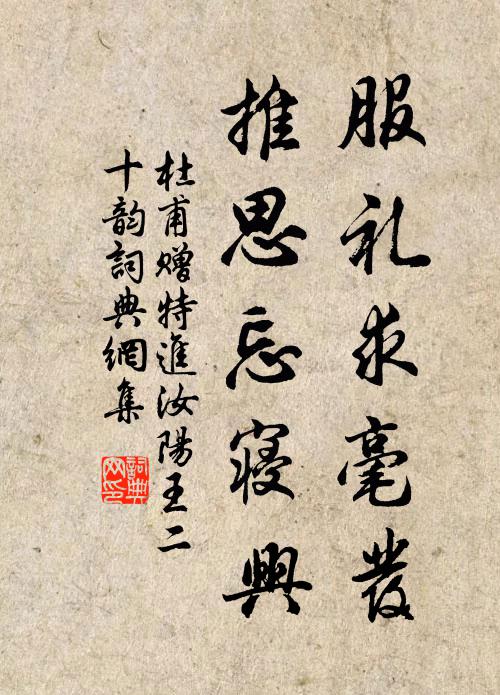 服礼求毫发
推思忘寝興
杜甫赠特進汝陽王二
十韵詞典網集
詞典網印